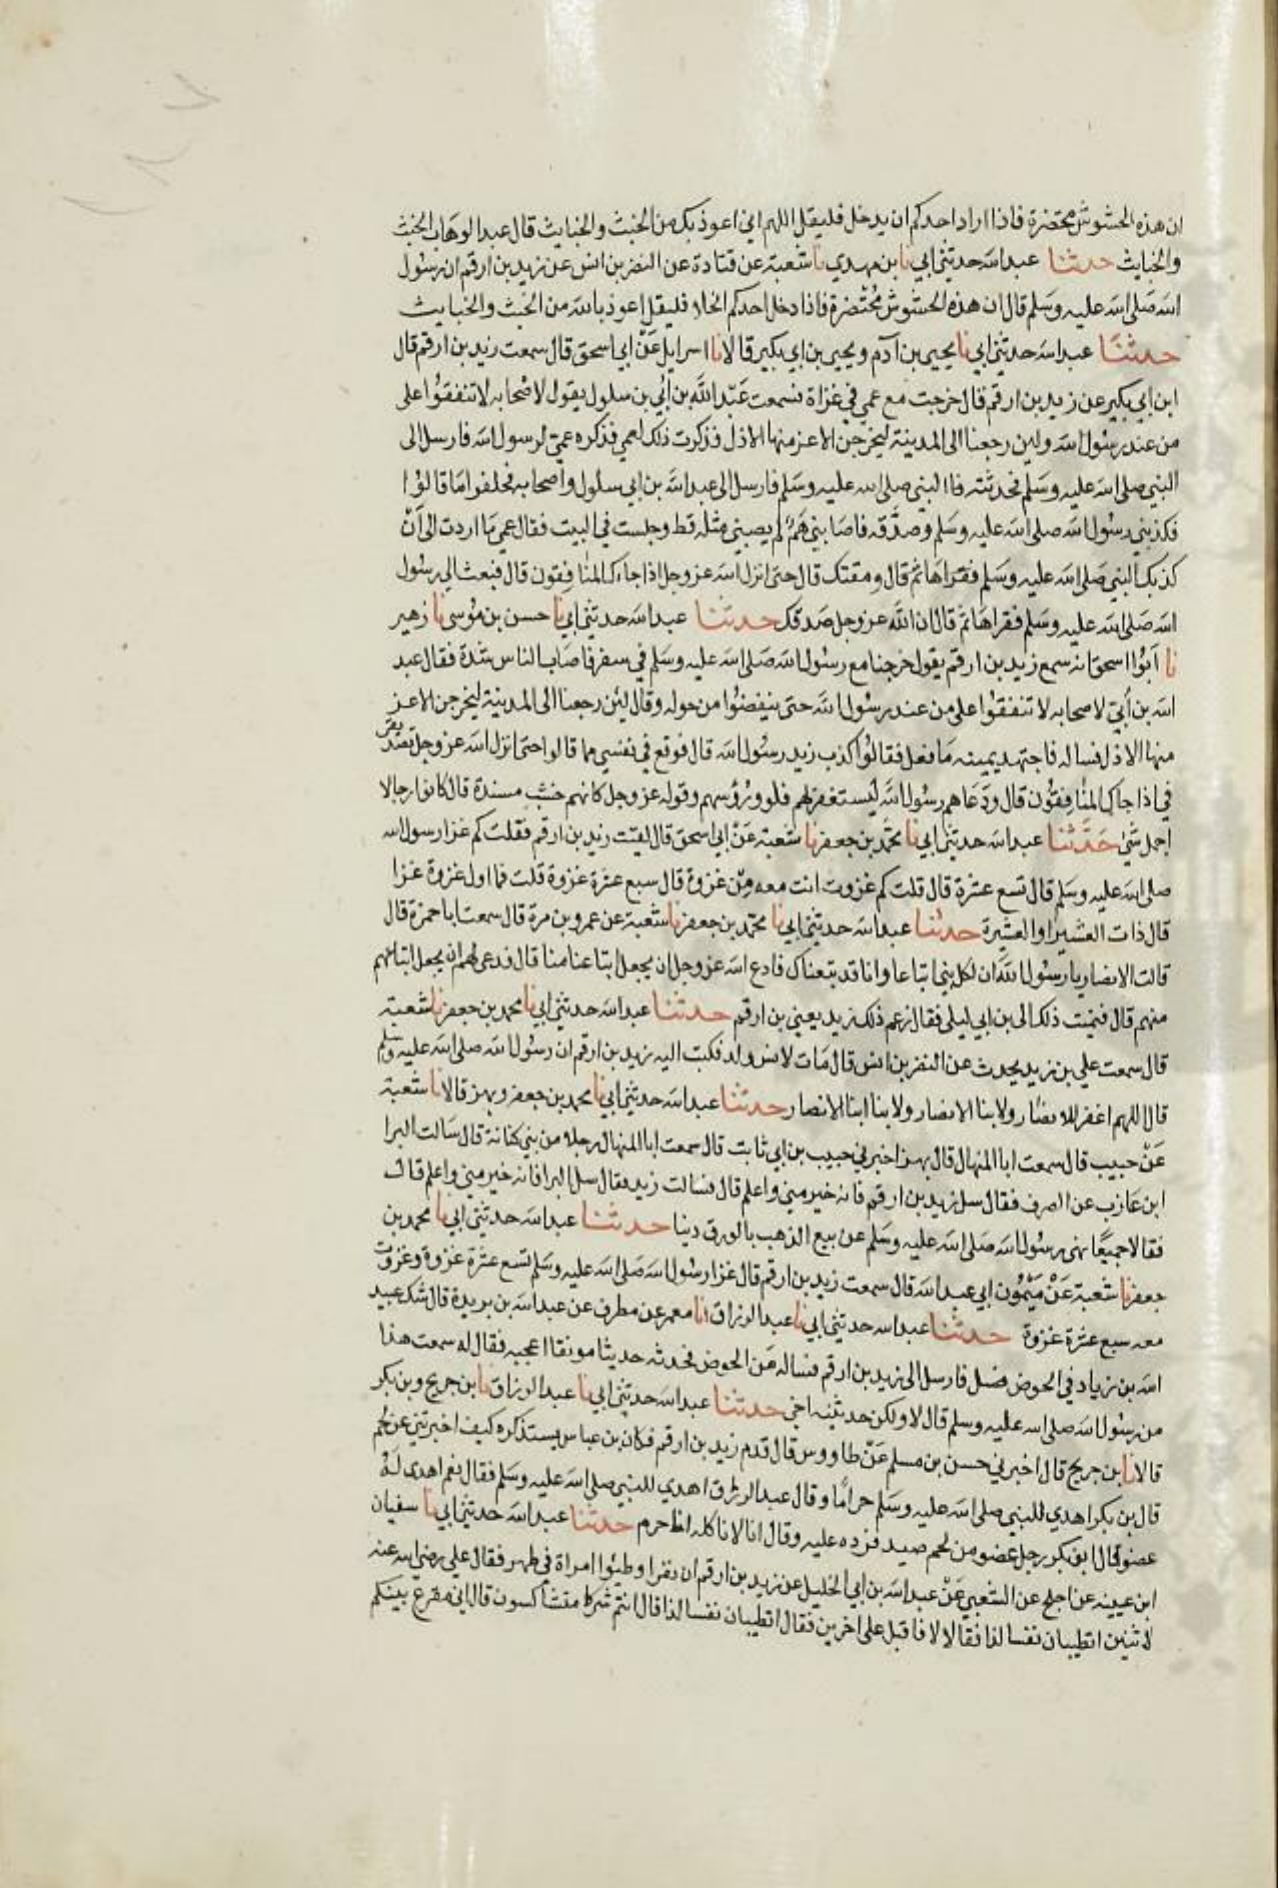 ان هذه الحشوش محتضرة فاذا اراد احدكم ان يدخل فليقل اللهم اني اعوذ بك من الخبث والخبايث قال عبد الوهاب الخبث
والخبايث حدثنا عبد الله حدثني ابي نا بن مهدي نا شعبة عن قتادة عن النضر بن انس عن زيد بن ارقم ان رسول
الله صلى الله عليه وسلم قال ان هذه الحشوش مُحْتضرة فاذا دخل احدكم الخلا فليقل اعوذ بالله من الخبث والخبايث
حدثنا عبد الله حدثني ابي نا يحيى بن آدم ويحيى بن ابي بكير قالا نا اسرايل عَنْ ابي اسحق قال سمعت زيد بن ارقم قال
ابن ابي بكير عن زيد بن ارقم قال خرجت مع عمي في غزاة فسمعت عَبْد الله بن اُبي بن سلول يقول لاصحابه لا تنفقوا على
من عند رسول الله ولين رجعنا الى المدينة ليخرجن الاعز منها الاذل فذكرت ذلك لعمي فذكره عمي لرسول الله فارسل الى
النبي صلى الله عليه وسلم فحدثته فاا لنبي صلى الله عليه وسلم فارسل الى عبد الله بن ابي سلول واصحابه فحلفوا مَا قالوا
فكذبني رسول الله صلى الله عليه وسلم وصدَّقه فاصابني هَمٌّ لم يصبني مثله قط وجلست في البيت فقال عمي مَا اردت الى اَنْ
كذبك النبي صَلى الله عليه وسلم فقراهَا ثم قال ومقتك قال حتى انزل الله عز وجل اذا جاءك المنافقون قال فبعث الي رسول
الله صَلى الله عليه وسلم فقراهَا ثم قال ان اللَّه عز وجل صَدقك حدثنا عبد الله حدثني ابي نا حسن بن مُوسى نا زهير
نا اَبُوا اسحق انه سمع زيد بن ارقم يقول خرجنا مع رسول الله صَلى الله عليه وسلم في سفر فاصَاب الناس شدة فقال عبد
الله بن اُبيّ لاصحابه لا تنفقوا على من عند رسول الله حتى ينفضوا من حوله وقال لئن رجعنا الى المدينة ليخرجن الاعز
منها الاذل فساله فاجتهد يمينه مَا فعل فقالوا كذب زيد رسول الله قال فوقع في نفسي مما قالوا حتى انزل الله عز وجل تصديقي
في اذا جاك المنَافِقون قال ودَعَاهم رسول الله ليستغفر لهم فلووا رؤسهم وقوله عز وجل كانهم خشب مسندة قال كانوا رجالا
اجمل شي حَدَّثنا عبد الله حدثني ابي نا محمَّد بن جعفر نا شعبة عَنْ ابي اسحق قال لقيت زيد بن ارقم فقلت كم غزا رسول الله
صلى الله عليه وسلم قال تسع عشرة قال قلت كم غزوت انت معه مِنْ غزوة قال سبع عشرة غزوة قلت فما اول غزوة غزا
قال ذات العشير او العشيرة حدثنا عبد الله حدثني ابي نا محمّد بن جعفر نا شعبة عن عمرو بن مرة قال سمعت ابا حمزة قال
قالت الانصار يا رسول الله ان لكل نبي اتباعا وانا قد تبعناك فادع الله عز وجل ان يجعل اتباعنا منا قال فدعى لهم ان يجعل اتباعهم
منهم قال فنميت ذلك الى بن ابي ليلى فقال زعم ذلك زيد يعني بن ارقم حدثنا عبد الله حدثني ابي نا محمد بن جعفر نا شعبة
قال سمعت علي بن زيد يحدث عن النضر بن انس قال مَات لانس ولد فكتب اليه زيد بن ارقم ان رسول الله صلى الله عليه وسلم
قال اللهم اغفر للانصَار ولابنا الانصار ولابنا ابنا الانصار حدثنا عبد الله حدثني ابي نا محمد بن جعفر وبهز قالا نا شعبة
عَنْ حبيب قال سمعت ابا المنهال قال بهز اخبرني حبيب بن ابي ثابت قال سمعت ابا المنهال رجلا من بني كنانة قال سَالت البرا
ابن عَازب عن الصرف فقال سل زيد بن ارقم فانه خير مني واعلم قال فسالت زيد فقال سل البرا فانه خير مني واعلم قال
فقالا جميعًا نهى رسول الله صَلى الله عليه وسلم عن بيع الذهب بالورق دينا حدثنا عبد الله حدثني ابي نا محمد بن
جعفر نا شعبة عَنْ مَيْمُون ابي عبد الله قال سمعت زيد بن ارقم قال غزا رسول الله صَلى الله عليه وسلم تسع عشرة غزوة وغزوت
معه سبع عشرة غزوة حدثنا عبد الله حدثني ابي نا عبد الرزاق انا معمر عن مطرف عن عبد الله بن بريدة قال شك عبيد
الله بن زياد في الحوض فارسل الى زيد بن ارقم فساله عَن الحوض فحدثه حديثا مونقا اعجبه فقال له سمعت هذا
من رسول الله صلى الله عليه وسلم قال لا ولكن حدثنيه اخي حدثنا عبد الله حدثني ابي نا عبد الرزاق نا بن جريج وبن بكر
قالا نا بن جريج قال اخبرني حسن بن مسلم عَنْ طاووس قال قدم زيد بن ارقم فكان بن عباس يستذكره كيف اخبرتني عن لحم
قال بن بكر اهدي للنبي صلى الله عليه وسلم حرامًا وقال عبد الرزاق اهدي للنبي صلى الله عليه وسلم فقال نعم اهدى لهُ
عضو قال ابو بكر رجل عضو من لحم صيد فرده عليه وقال انا لا ناكله انا حرم حدثنا عبد الله حدثني ابي نا سفيان
ابن عيينه عن اجلح عن الشعبي عَنْ عبد الله بن ابي الخليل عن زيد بن ارقم ان نفرا وطئوا امراة في طهر فقال علي رضي الله عنه
لاثنين اتطيبان نفسا لذا فقالا لا فاقبل على اخرين فقال اتطيبان نفسا لذا قال انتم شركا متشاكسون قال اني مقرع بينكم